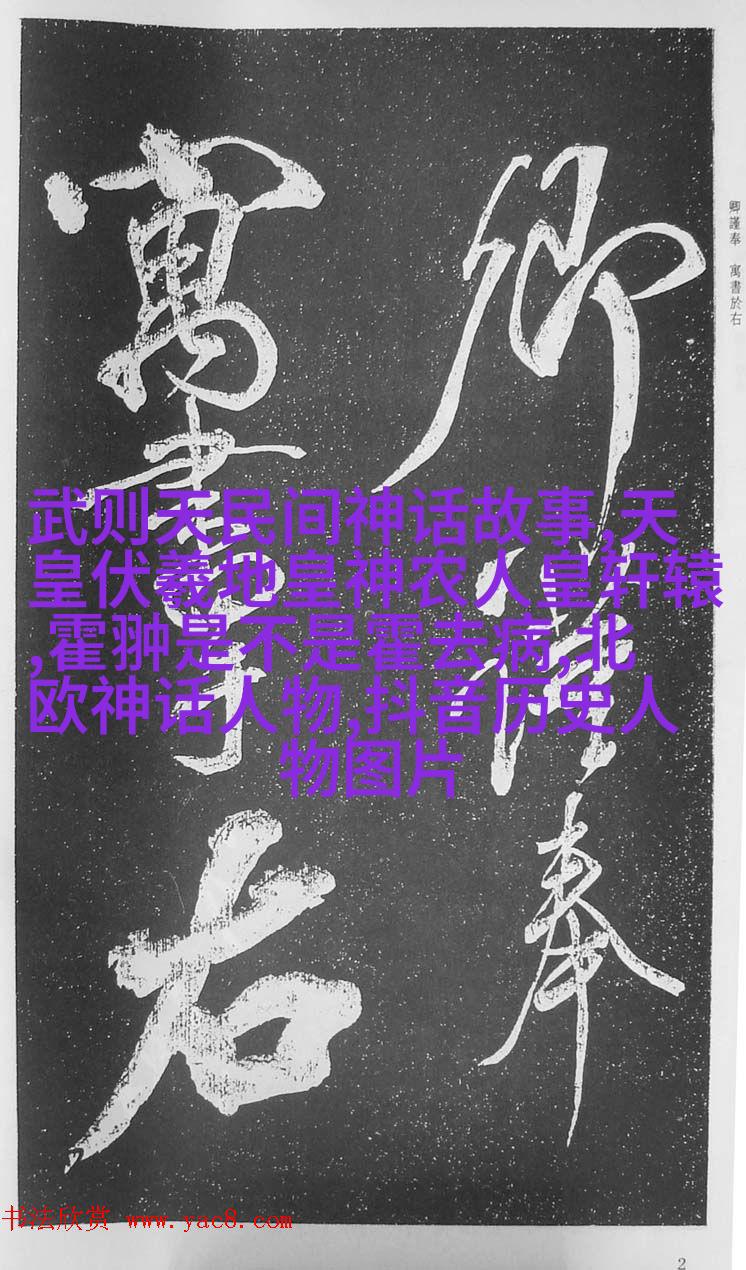 卿謹奉
寓書於右
卿謹奉　寓書於右
武则天民间神话故事,天
皇伏羲地皇神农人皇轩辕
,霍翀是不是霍去病,北
欧神话人物,抖音历史人
物图片
书法欣赏 www.yac8.com
2